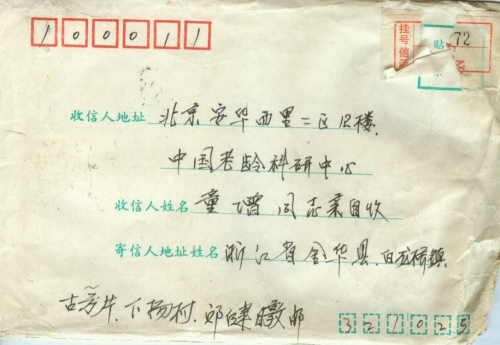 100011
挂号信函
贴
72
收信人地址 北京安华西里二区12楼
中国老龄科研中心
收信人姓名 童增同志亲自收
寄信人地址姓名 浙江省金华县 白龙桥镇
古方片、下杨村、邓建 邮
321025